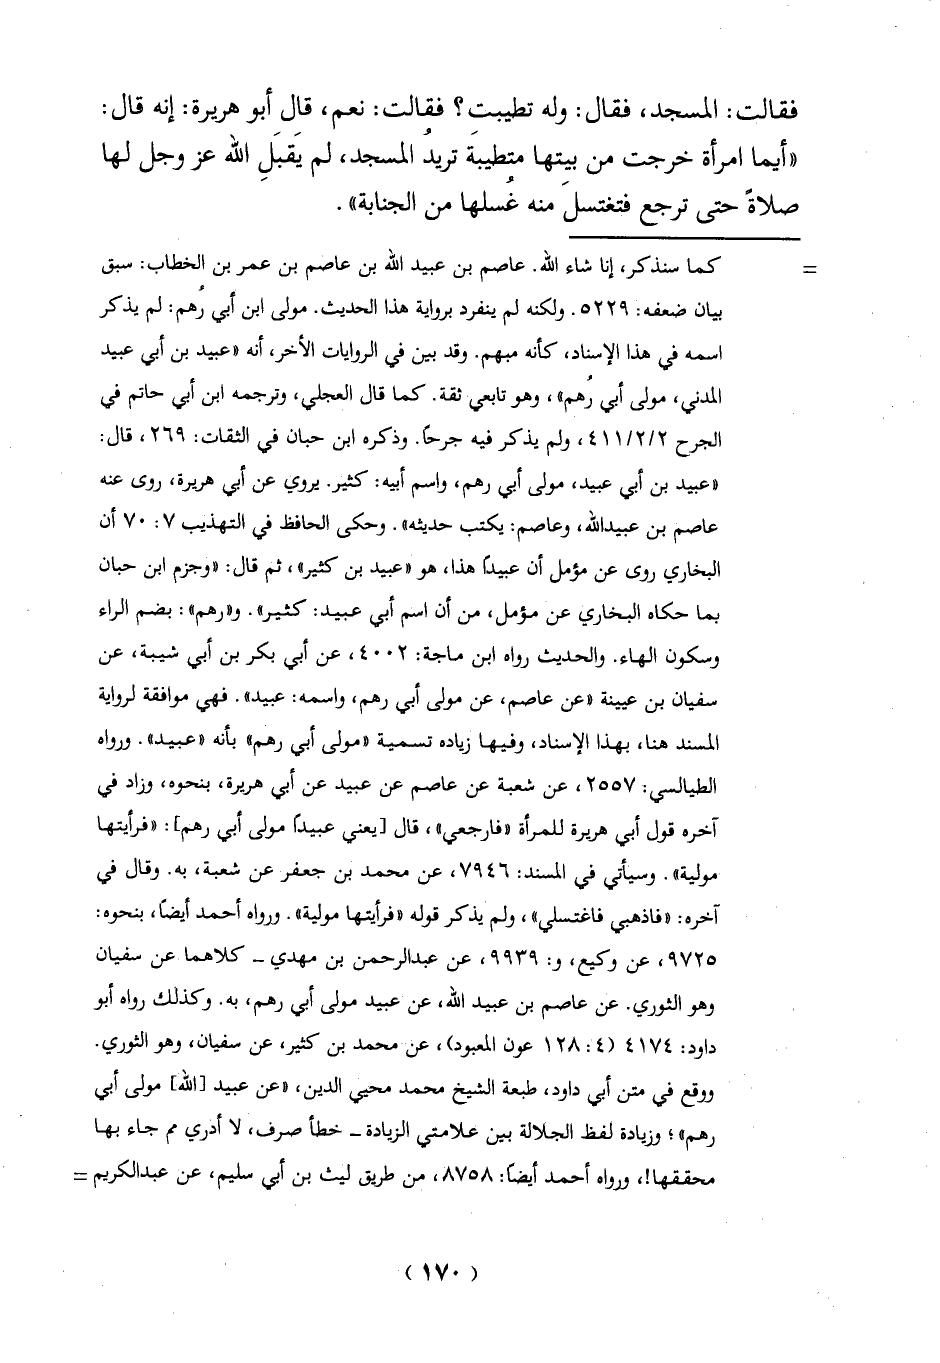 فقالت: المسجد، فقال: وله تطيبتِ؟ فقالت: نعم، قال أبو هريرة: إنه قال:
«أيما امرأة خرجت من بيتها متطيبة تريدُ المسجد، لم يَقبَلِ الله عز وجل لها
صلاةً حتى ترجع فتغتسلَ منه غُسلها من الجنابة».
= كما سنذكر، إنا شاء الله. عاصم بن عبيد الله بن عاصم بن عمر بن الخطاب: سبق
بيان ضعفه: ٥٢٢٩. ولكنه لم ينفرد برواية هذا الحديث. مولى ابن أبي رُهم: لم يذكر
اسمه في هذا الإسناد، كأنه مبهم. وقد بين في الروايات الأخر، أنه «عبيد بن أبي عبيد
المدني، مولى أبي رُهم»، وهو تابعي ثقة. كما قال العجلي، وترجمه ابن أبي حاتم في
الجرح ٤١١/٢/٢، ولم يذكر فيه جرحًا. وذكره ابن حبان في الثقات: ٢٦٩، قال:
«عبيد بن أبي عبيد، مولى أبي رهم، واسم أبيه: كثير. يروي عن أبي هريرة، روى عنه
عاصم بن عبيدالله، وعاصم: يكتب حديثه». وحكى الحافظ في التهذيب ٧: ٧٠ أن
البخاري روى عن مؤمل أن عبيدًا هذا، هو «عبيد بن كثير»، ثم قال: «وجزم ابن حبان
بما حكاه البخاري عن مؤمل، من أن اسم أبي عبيد: كثير». و«رهم»: بضم الراء
وسكون الهاء. والحديث رواه ابن ماجة: ٤٠٠٢، عن أبي بكر بن أبي شيبة، عن
سفيان بن عيينة «عن عاصم، عن مولى أبي رهم، واسمه: عبيد». فهي موافقة لرواية
المسند هنا، بهذا الإسناد، وفيها زياده تسمية «مولى أبي رهم» بأنه «عبيد». ورواه
الطيالسي: ٢٥٥٧، عن شعبة عن عاصم عن عبيد عن أبي هريرة، بنحوه، وزاد في
آخره قول أبي هريرة للمرأة «فارجعي»، قال [يعني عبيدًا مولى أبي رهم]: «فرأيتها
مولية». وسيأتي في المسند: ٧٩٤٦، عن محمد بن جعفر عن شعبة، به. وقال في
آخره: «فاذهبي فاغتسلي»، ولم يذكر قوله «فرأيتها مولية». ورواه أحمد أيضًا، بنحوه:
٩٧٢٥، عن وكيع، و: ٩٩٣٩، عن عبدالرحمن بن مهدي ـ كلاهما عن سفيان
وهو الثوري. عن عاصم بن عبيد الله، عن عبيد مولى أبي رهم، به. وكذلك رواه أبو
داود: ٤١٧٤ (٤: ١٢٨ عون المعبود)، عن محمد بن كثير، عن سفيان، وهو الثوري.
ووقع في متن أبي داود، طبعة الشيخ محمد محيي الدين، «عن عبيد [الله] مولى أبي
رهم»؛ وزيادة لفظ الجلالة بين علامتي الزيادة ـ خطأ صرف، لا أدري مم جاء بها
محققها!، ورواه أحمد أيضًا: ٨٧٥٨، من طريق ليث بن أبي سليم، عن عبدالكريم =
(١٧٠)